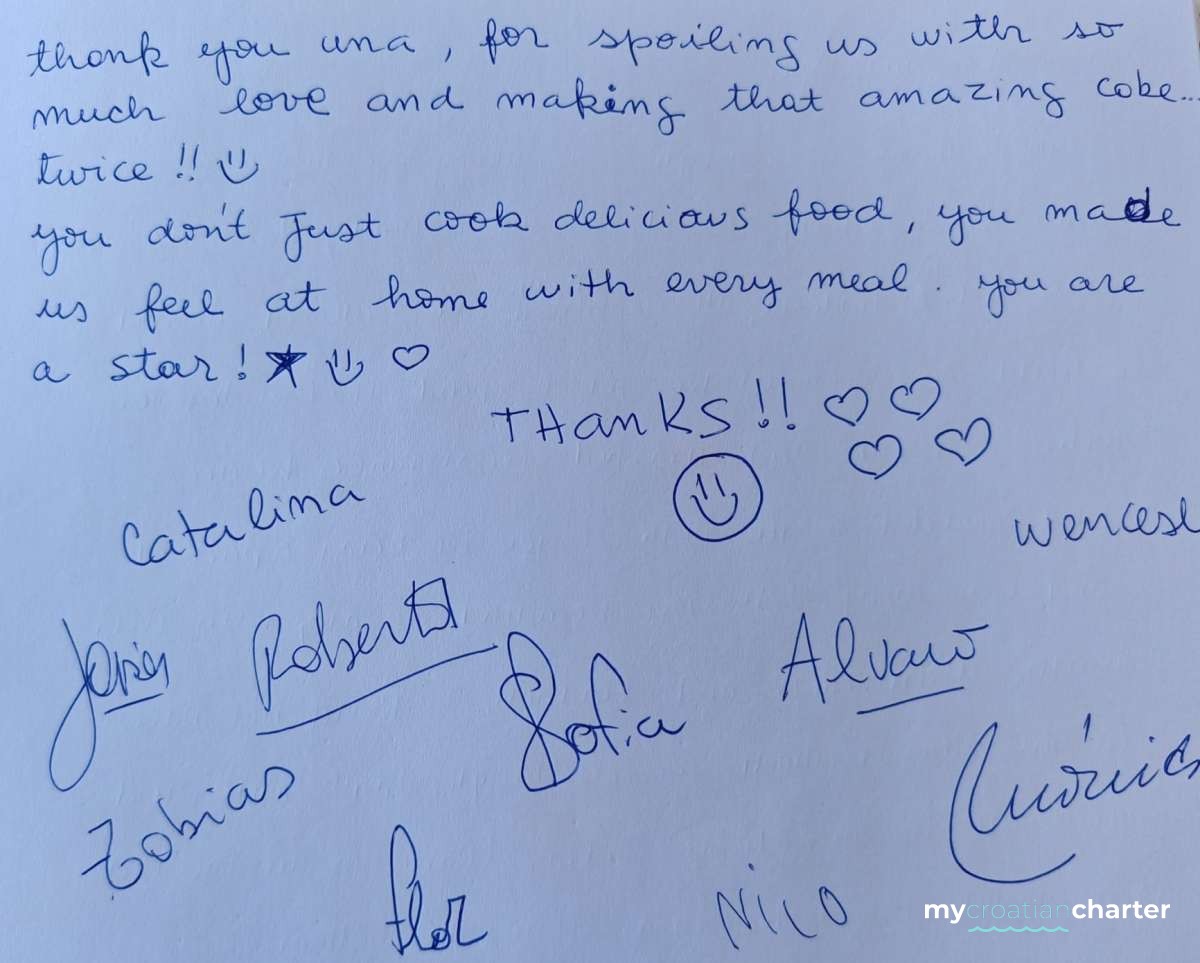 thank you una, for spoiling us with so
much love and making that amazing cake...
twice !!
you don't just cook delicious food, you made
us feel at home with every meal. you are
a star!
THanKS!!
Catalina
wencesl
Javier Roberto
Sofia
Alvaro
Tobias
Mónica
flor
NICO
mycroatiancharter